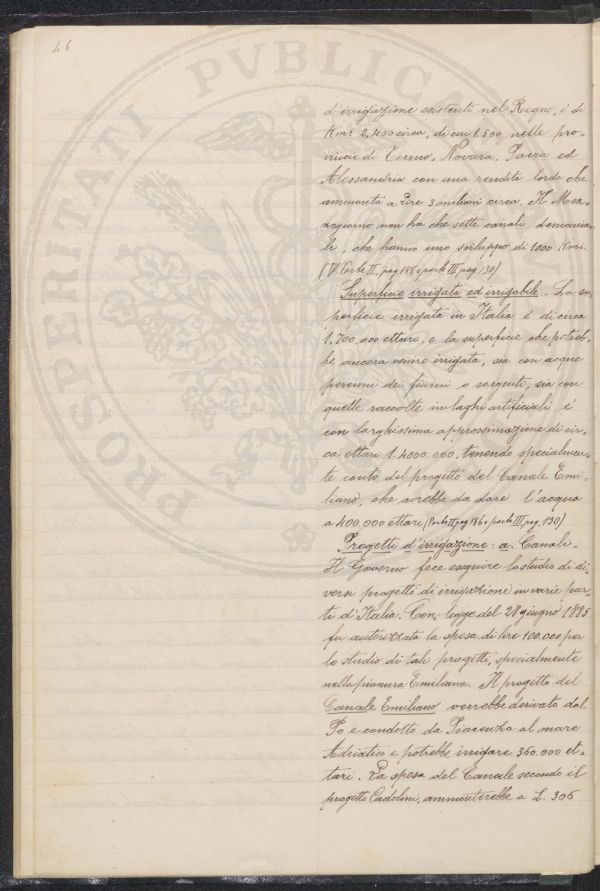 46
d'irrigazione esistenti nel Regno, è di
Km.i 2,400 circa, di cui 1.500 nelle pro-
vincie di Torino, Novara, Pavia ed
Alessandria con una rendita lorda che
ammonta a Lire 3 milioni circa. Il Mez-
zogiorno non ha che sette canali demania-
li, che hanno uno sviluppo di 1000 Kmi.
(V. Parte II, pag 186 e parte III, pag. 130)
Superficie irrigata ed irrigabile. - La su-
perficie irrigata in Italia è di circa
1.700.000 ettari, e la superficie che potreb-
be ancora venire irrigata, sia con acque
perenni dei fiumi o sorgenti, sia con
quelle raccolte in laghi artificiali è
con larghissima approssimazione di cir-
ca ettari 1.4000.000. tenendo specialmen-
te conto del progetto del Canale Emi-
liano, che avrebbe da dare l'acqua
a 400,000 ettari (Parte II, pag 186 e parte III, pag. 130)
Progetti d'irrigazione: a. Canali -
Il Governo fece eseguire lo studio di di-
versi progetti di irrigazione in varie par-
ti d'Italia. Con legge del 28 giugno 1885
fu autorizzata la spesa di lire 100.000 per
lo studio di tali progetti, specialmente
nella pianura Emiliana. Il progetto del
Canale Emiliano verrebbe derivato dal
Po e condotto da Piacenza al mare
Adriatico e potrebbe irrigare 360.000 et-
tari. La spesa del Canale secondo il
progetto Cadolini, ammonterebbe a L. 306
PROSPERITATI PVBLICAE